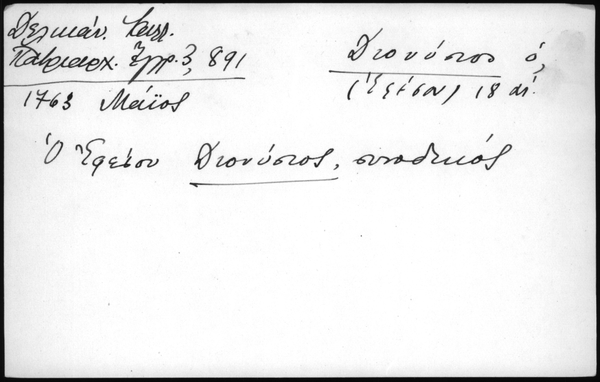 Δελικάν. Καλλ.
Πατριαρχ. Ἔγγρ. 3, 891
1763 Μάϊος
Διονύσιος ὁ,
(Ἐφέσου) 18 αἰ.
Ὁ Ἐφέσου Διονύσιος, συνοδικός